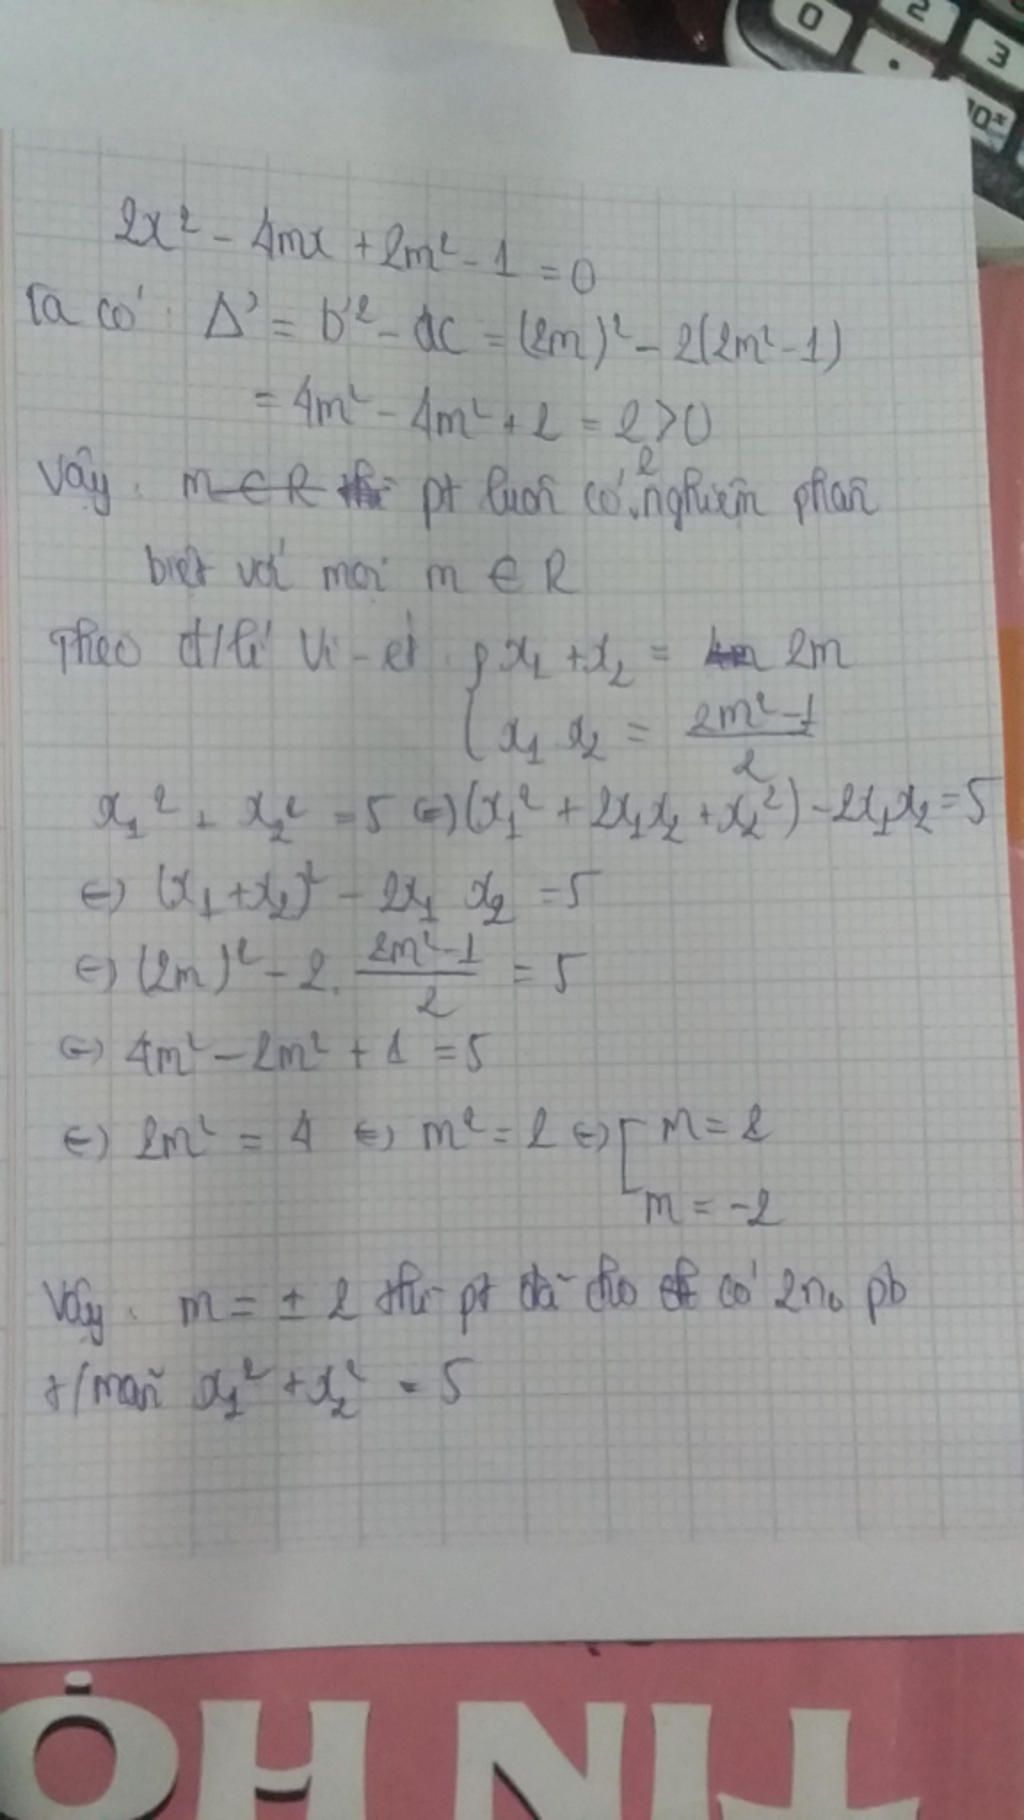 0 2
. 3
10ˣ
2x² - 4mx + 2m² - 1 = 0
Ta có: Δ' = b'² - ac = (2m)² - 2(2m² - 1)
= 4m² - 4m² + 2 = 2 > 0
Vậy: m ∈ R thì pt luôn có 2 nghiệm phân
biệt với mọi m ∈ R
Theo đ/lí Vi-ét { x₁ + x₂ = 2m
x₁ x₂ = (2m² - 1)/2
x₁² + x₂² = 5 ⇔ (x₁² + 2x₁x₂ + x₂²) - 2x₁x₂ = 5
⇔ (x₁ + x₂)² - 2x₁ x₂ = 5
⇔ (2m)² - 2. (2m² - 1)/2 = 5
⇔ 4m² - 2m² + 1 = 5
⇔ 2m² = 4 ⇔ m² = 2 ⇔ [ m = 2
m = -2
Vậy: m = ± 2 thì pt đã cho có 2no pb
t/mãn x₁² + x₂² = 5
TIN HỌ